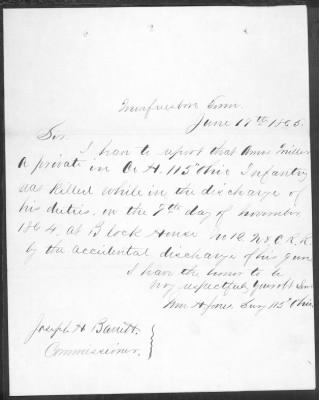 Murfreesboro Tenn.
June 17th 1865.
Sir.
I have to report that Amos Miller
a private in Co H. 115th Ohio Infantry
was killed while in the discharge of
his duties. on the 7th day of November
1864. at Block House No N & C R.R.
by the accidental discharge of his gun
I have the honor to be
Very respectfully Your obt Servt
Wm H Jones Surg 115th Ohio
Joseph H Barrett.
Commissioner.